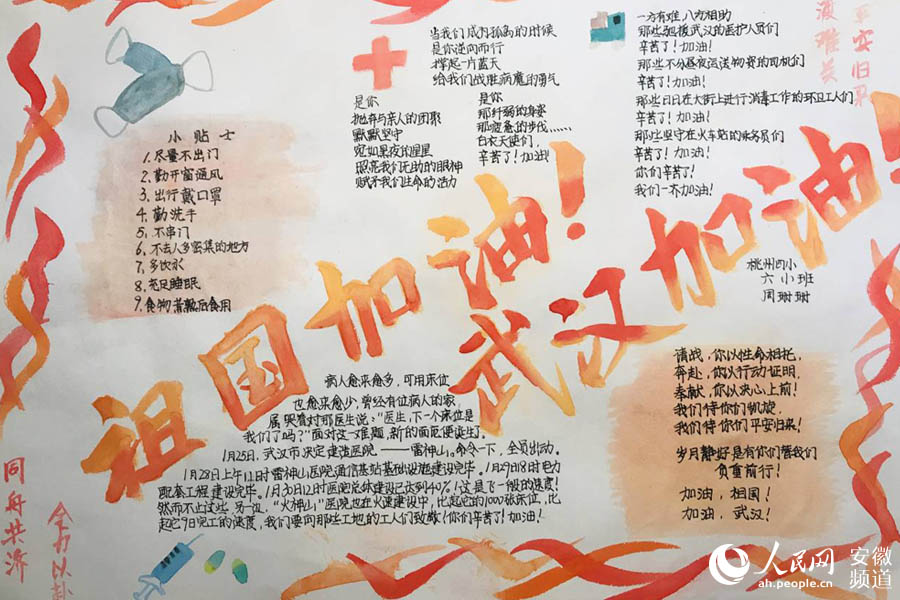 当我们成为孤岛的时候
是你逆向而行
撑起一片蓝天
给我们战胜病魔的勇气
是你
抛弃与亲人的团聚
默默坚守
宛如黑夜的星星
照亮我们无助的眼神
赋予我们生命的活力
是你
那纤弱的身姿
那疲惫的步伐……
白衣天使们,
辛苦了!加油!
一方有难,八方相助
那些驰援武汉的医护人员们
辛苦了!加油!
那些不分昼夜运送物资的司机们
辛苦了!加油!
那些日日在大街上进行消毒工作的环卫工人们
辛苦了!加油!
那些坚守在火车站的乘务员们
辛苦了!加油!
你们辛苦了!
我们一齐加油!
渡难关
平安归来
小贴士
1.尽量不出门
2.勤开窗通风
3.出行戴口罩
4.勤洗手
5.不串门
6.不去人多密集的地方
7.多饮水
8.充足睡眠
9.食物煮熟后食用
祖国加油!
武汉加油!
桃州四小
六小班
周珊珊
病人愈来愈多,可用床位
也愈来愈少,曾经有位病人的家
属哭着对那医生说:"医生,下一个床位是
我们了吗?"面对这一难题,新的面貌便诞生。
1月25日,武汉市决定建造医院——雷神山。命令一下,全员出动。
1月28日上午12时雷神山医院通信基站基础设施建设完毕。1月29日18时电力
配套工程建设完毕。1月30日12时医院总体建设已达到40%!这是飞一般的速度!
然而不止这些,另一边,"火神山"医院也在火速建设中,比起它的1000张床位,比
起它9日完工的速度,我们要向那些工地的工人们致敬!你们辛苦了!加油!
请战,你以性命相托,
奔赴,你以行动证明,
奉献,你以决心上前!
我们待你们凯旋,
我们待你们平安归来!
岁月静好是有你们替我们
负重前行!
加油,祖国!
加油,武汉!
同舟共济
全力以赴
人民网
ah.people.cn
安徽
频道